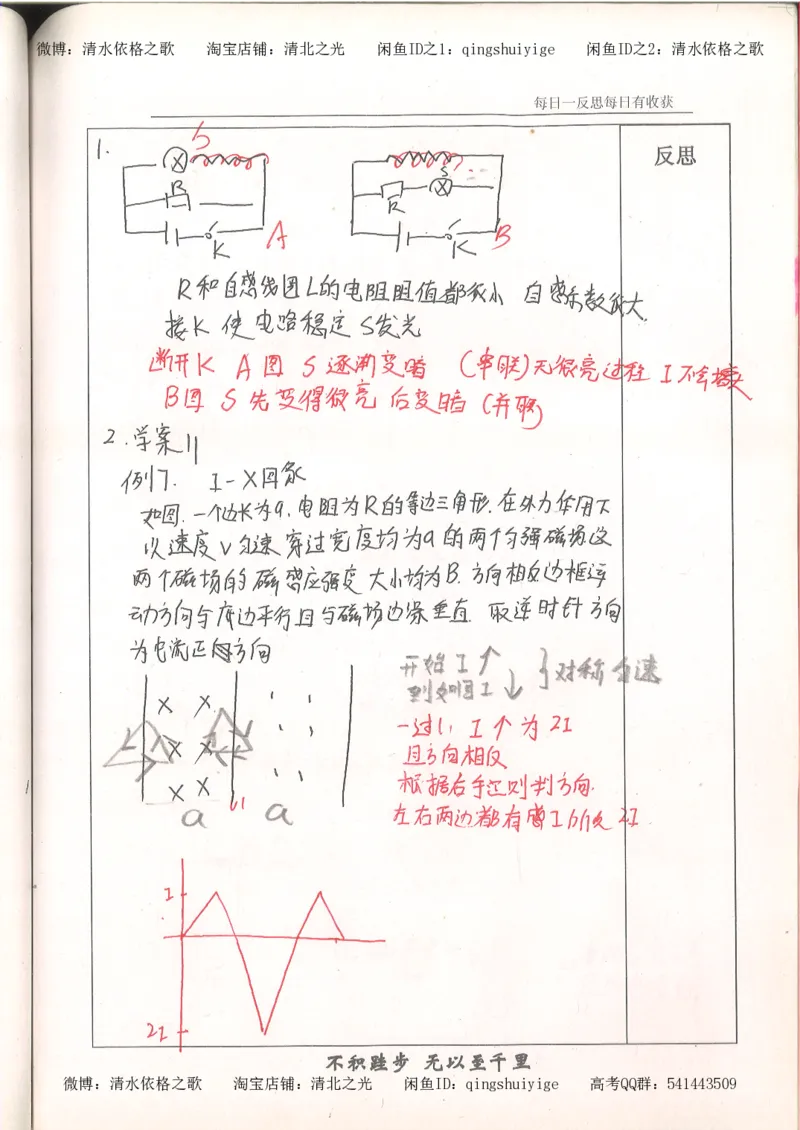 微博：清水依格之歌 淘宝店铺：清北之光 闲鱼ID之1：qingshuiyige 闲鱼ID之2：清水依格之歌
每日一反思每日有收获
反思
1.
S
R
K
A
S
R
K
B
R和自感线圈L的电阻阻值都很小 自感系数很大
接K 使电路稳定 S发光
断开K A图 S逐渐变暗 (串联)无很亮过程 I不会
B图 S先变得很亮 后变暗 (并联)
2.学案11
例7. I-X图象
如图.一个边长为a,电阻为R的等边三角形.在外力作用下
以速度v匀速穿过宽度均为a的两个匀强磁场这
两个磁场的磁感应强度大小均为B.方向相反边框运
动方向与底边平行且与磁场边缘垂直.取逆时针方向
为电流正方向
开始I↑
I↓
}对称匀速
一过l1 I↑为2I
且方向相反
根据右手定则判方向.
左右两边都有感I 所以 2I
a
l1
a
I
2I
不积跬步 无以至千里
微博：清水依格之歌 淘宝店铺：清北之光 闲鱼ID：qingshuiyige 高考QQ群：541443509